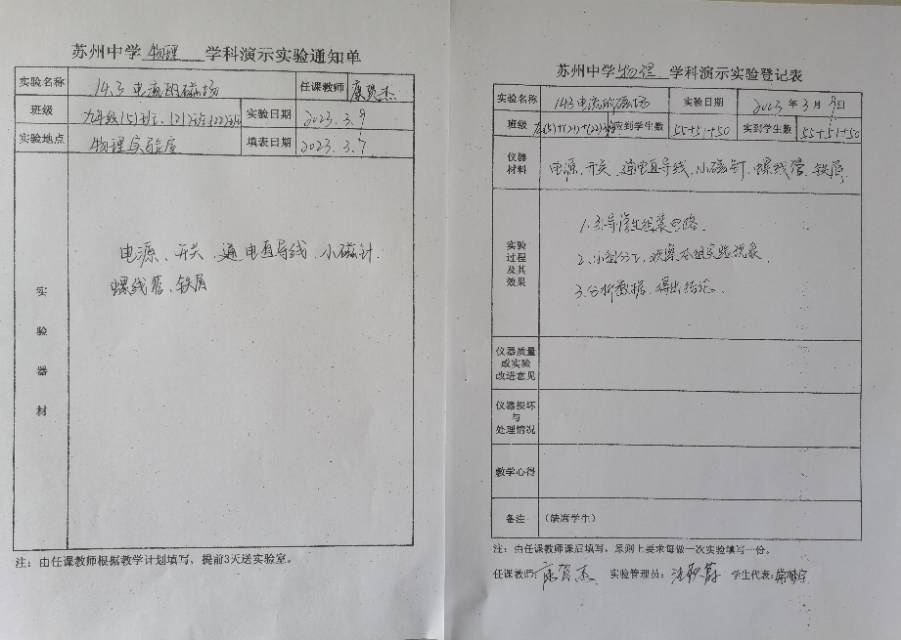 苏州中学 物理 学科演示实验通知单
实验名称 14.3 电流的磁场 任课教师
班级 九年级(5)班、(21)班(22)班 实验日期 2023.3.9
实验地点 物理实验室 填表日期 2023.3.7
实验器材
电源、开关、通电直导线、小磁针
螺线管、铁屑
注：由任课教师根据教学计划填写，提前3天送实验室。
苏州中学 物理 学科演示实验登记表
实验名称 14.3 电流的磁场 实验日期 2023年3月9日
班级 九(5)+(21)+(22) 应到学生数 55+51+50 实到学生数 55+51+50
仪器材料 电源、开关、通电直导线、小磁针、螺线管、铁屑
实验过程及其效果
1.引导学生组装电路。
2.小组分工，观察本组实验现象。
3.分析数据，得出结论。
仪器质量或实验改进意见
仪器损坏与处理情况
教学心得
备注 （缺席学生）
注：由任课教师课后填写，原则上要求每做一次实验填写一份。
任课教师： 实验管理员： 学生代表：